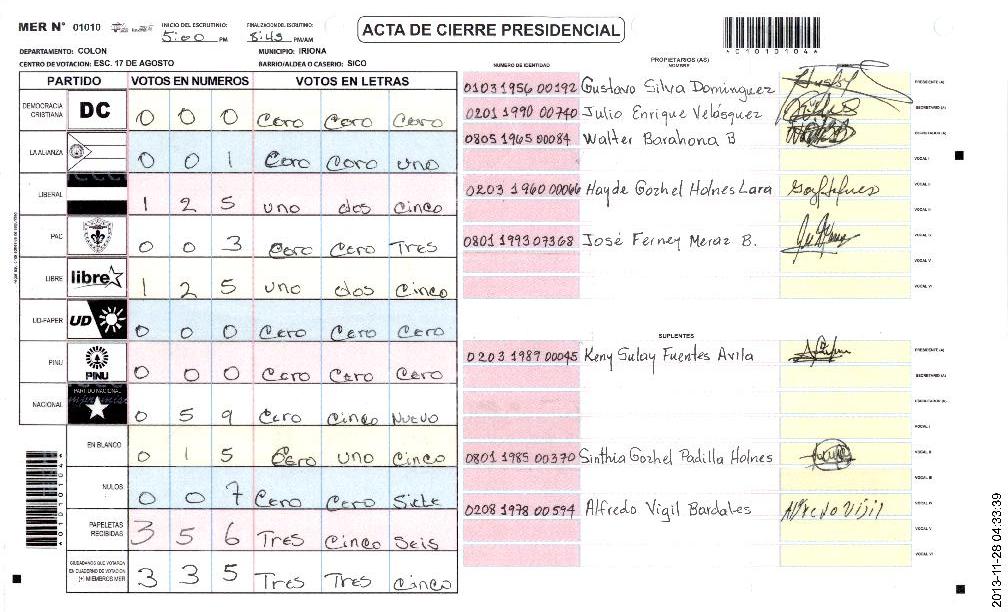 MER N° 01010
INICIO DEL ESCRUTINIO: 5:00 PM
FINALIZACION DEL ESCRUTINIO: 8:43 PM/AM
ACTA DE CIERRE PRESIDENCIAL
40101014
DEPARTAMENTO: COLON
MUNICIPIO: IRIONA
CENTRO DE VOTACION: ESC. 17 DE AGOSTO
BARRIO/ALDEA O CASERIO: SICO
PARTIDO VOTOS EN NUMEROS VOTOS EN LETRAS
DEMOCRACIA CRISTIANA DC 0 0 0 Cero Cero Cero
LA ALIANZA 0 0 1 Cero Cero uno
LIBERAL 1 2 5 uno dos Cinco
PAC 0 0 3 Cero Cero Tres
LIBRE libre 1 2 5 uno dos Cinco
UD-FAPER UD 0 0 0 Cero Cero Cero
PINU PINU 0 0 0 Cero Cero Cero
NACIONAL PARTIDO NACIONAL 0 5 9 Cero Cinco Nuevo
EN BLANCO 0 1 5 Cero uno Cinco
NULOS 0 0 7 Cero Cero Siete
PAPELETAS RECIBIDAS 3 5 6 Tres Cinco Seis
CIUDADANOS QUE VOTARON EN CUADERNO DE VOTACION (+) MIEMBROS MER 3 3 5 Tres Tres Cinco
NUMERO DE IDENTIDAD
PROPIETARIOS (AS)
NOMBRE
FIRMA
0103 1956 00192 Gustavo Silva Dominguez PRESIDENTE (A)
0201 1990 00740 Julio Enrique Velásquez SECRETARIO (A)
0805 1965 00084 Walter Barahona B ESCRUTADOR (A)
VOCAL I
0203 1960 00066 Hayde Gozhel Holnes Lara VOCAL II
VOCAL III
0801 1993 07368 José Ferney Meraz B. VOCAL IV
VOCAL V
VOCAL VI
SUPLENTES
0203 1989 00045 Keny Sulay Fuentes Avila PRESIDENTE (A)
SECRETARIO (A)
ESCRUTADOR (A)
VOCAL I
0801 1985 00370 Sinthia Gozhel Padilla Holnes VOCAL II
VOCAL III
0208 1978 00594 Alfredo Vigil Bardales Alfredo Vijil VOCAL IV
VOCAL V
VOCAL VI
2013-11-28 04:33:39